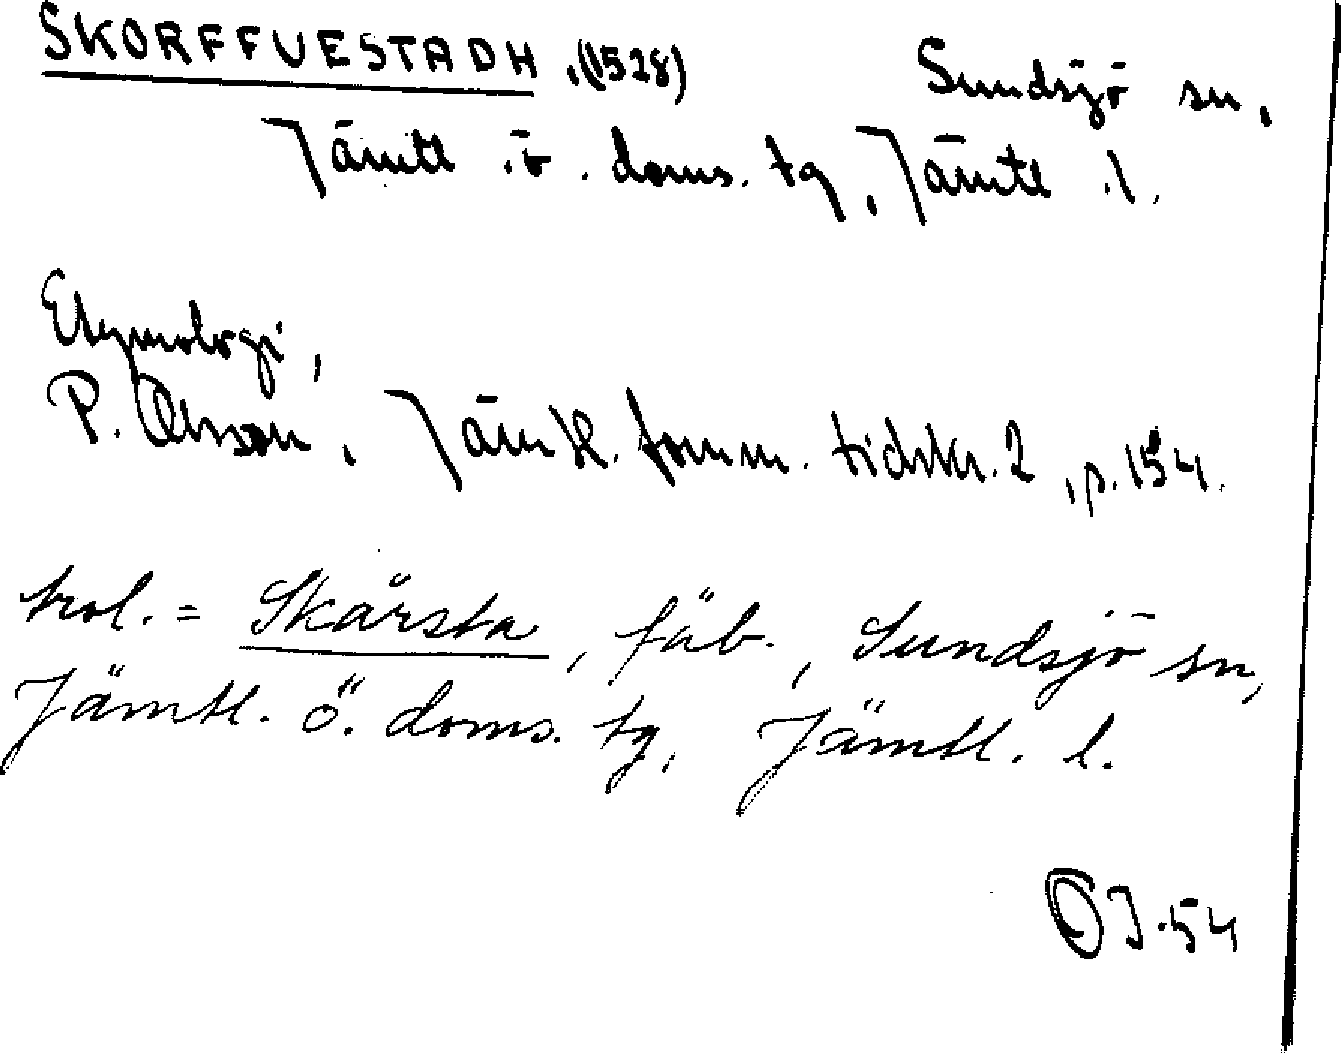 SKORFFUESTADH, (1528) Sundsjö sn,
Jämtl. ö. doms. tg, Jämtl. l.
Etymologi,
P. Olsson, Jämtl. fornm. tidskr. 2, p. 154.
trol. = Skårsta, fäb., Sundsjö sn,
Jämtl. ö. doms. tg, Jämtl. l.
OJ-54